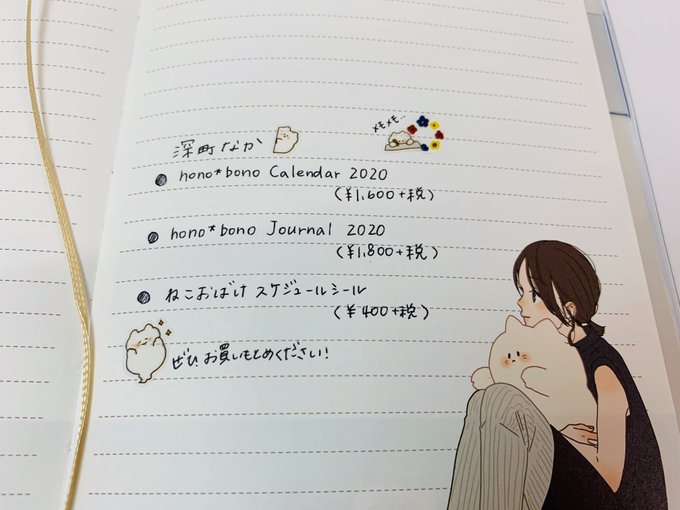 メモメモ…
深町なか
● hono*bono Calendar 2020
(¥1,600+税)
● hono*bono Journal 2020
(¥1,800+税)
● ねこおばけ スケジュールシール
(¥400+税)
ぜひ、お買いもとめください!